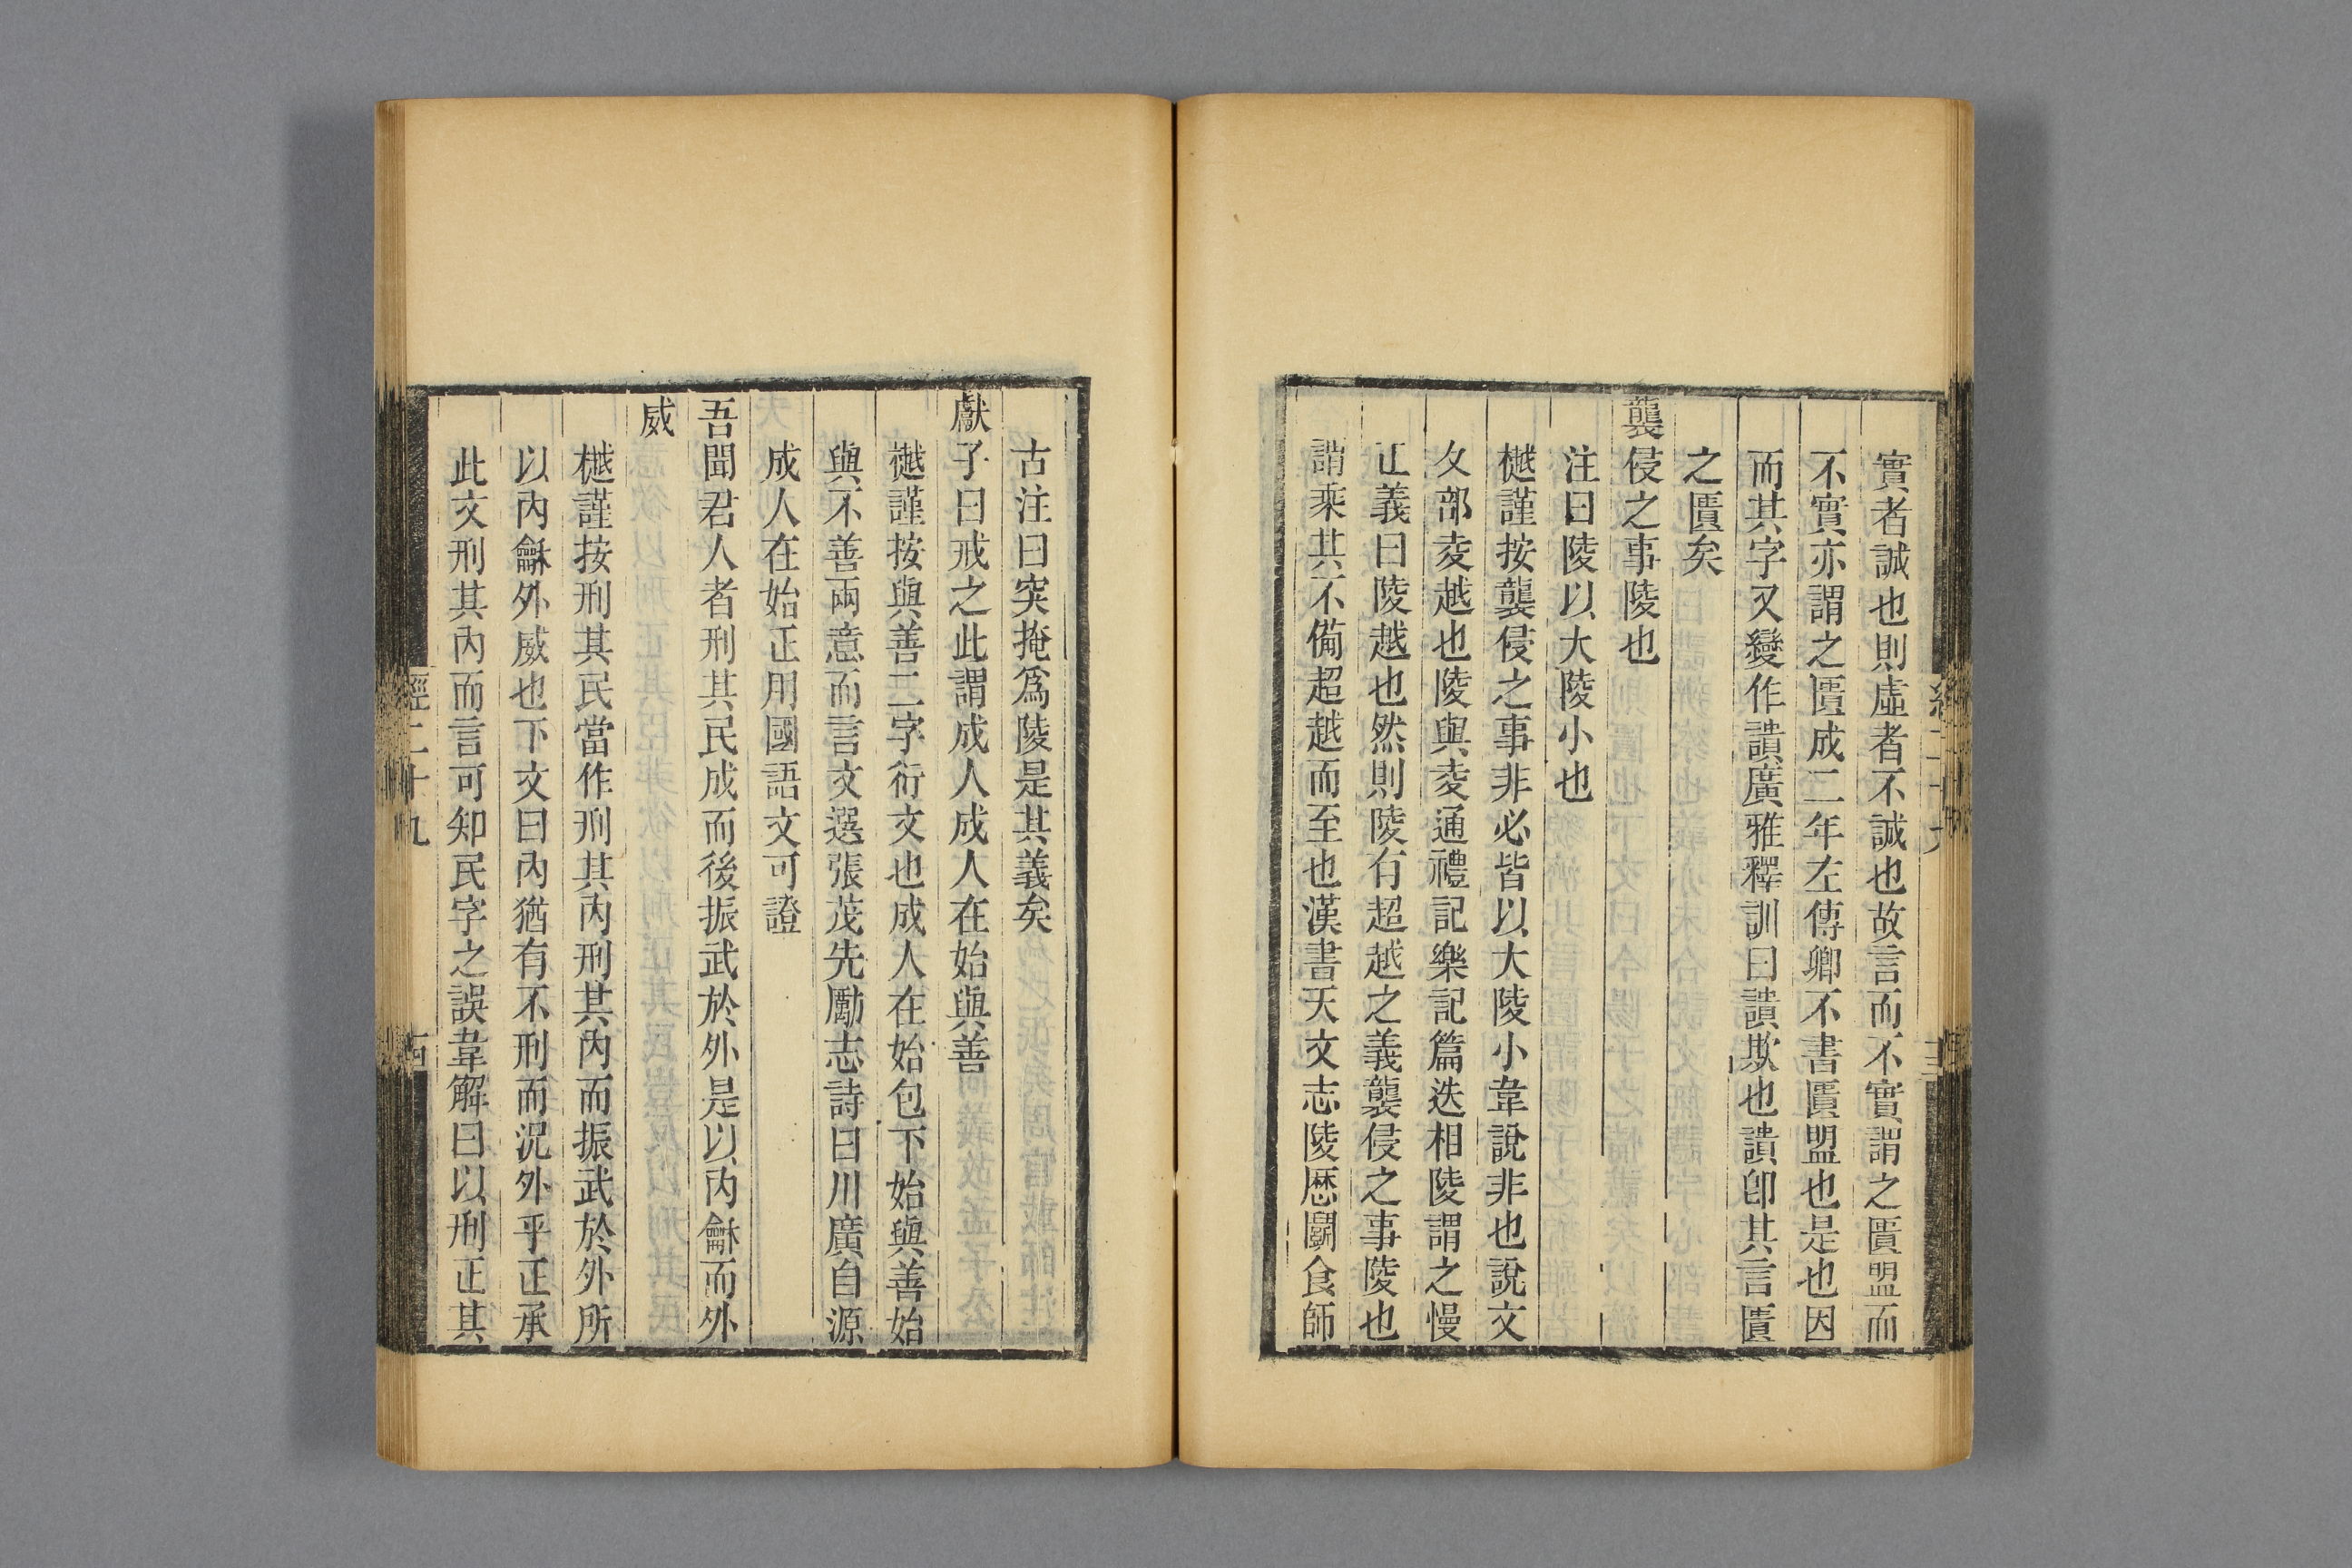 實者誠也則虛者不誠也故言而不實謂之匱盟而
不實亦謂之匱成二年左傳卿不書匱盟也是也因
而其字又變作䜋廣雅釋訓曰䜋欺也䜋卽其言匱
之匱矣
襲侵之事陵也
注曰陵以大陵小也
樾謹按襲侵之事非必皆以大陵小韋說非也說文
夊部夌越也陵與夌通禮記樂記篇迭相陵謂之慢
正義曰陵越也然則陵有超越之義襲侵之事陵也
謂乘其不備超越而至也漢書天文志陵厯鬭食師
古注曰突掩爲陵是其義矣
獻子曰戒之此謂成人成人在始與善
樾謹按與善二字衍文也成人在始包下始與善始
與不善兩意而言文選張茂先勵志詩曰川廣自源
成人在始正用國語文可證
吾聞君人者刑其民成而後振武於外是以內龢而外
威
樾謹按刑其民當作刑其內刑其內而振武於外所
以內龢外威也下文曰內猶有不刑而況外乎正承
此文刑其內而言可知民字之誤韋解曰以刑正其
經二十九